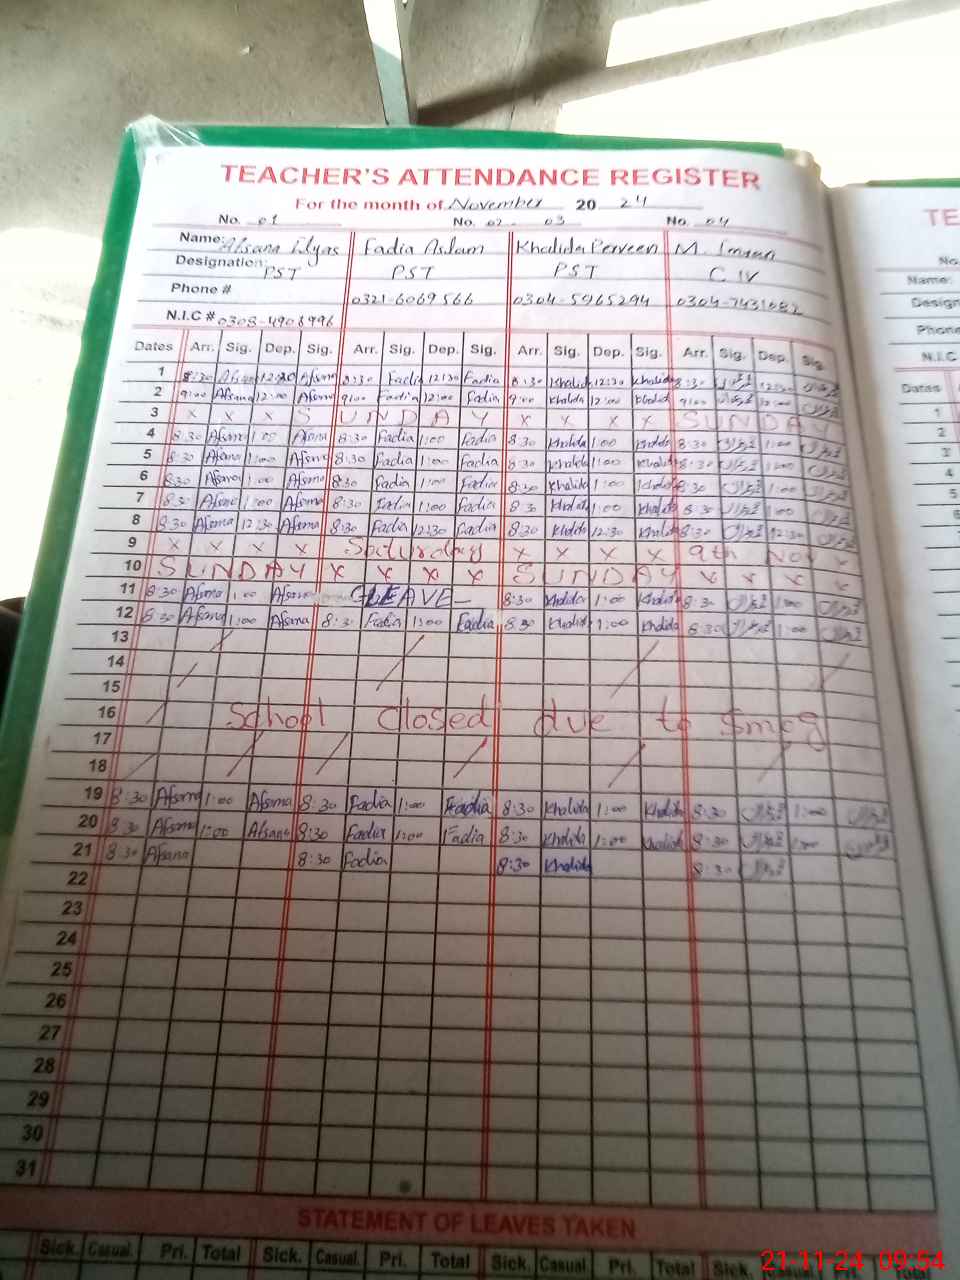 TEACHER'S ATTENDANCE REGISTER
For the month of November 20 24
No. 01 No. 02 03 No. 04
Name: Afsana Ilyas Fadia Aslam Khalida Perveen M. Imran
Designation: PST PST PST C IV
Phone # 0321-6069566 0304-5965294
N.I.C # 0308-4906996
Dates Arr. Sig. Dep. Sig. Arr. Sig. Dep. Sig. Arr. Sig. Dep. Sig. Arr. Sig. Dep. Sig.
1 8:30 Afsana 12:30 Afsana 8:30 Fadia 12:30 Fadia 8:30 Khalida 12:30 Khalida 8:30 12:30
2 9:00 Afsana 12:00 Afsana 9:00 Fadia 12:00 Fadia 9:00 Khalida 12:00 Khalida 9:00 12:00
3 x x x S U N D A Y x x x x S U N D A Y
4 8:30 Afsana 1:00 Afsana 8:30 Fadia 1:00 Fadia 8:30 Khalida 1:00 Khalida 8:30 1:00
5 8:30 Afsana 1:00 Afsana 8:30 Fadia 1:00 Fadia 8:30 Khalida 1:00 Khalida 8:30 1:00
6 8:30 Afsana 1:00 Afsana 8:30 Fadia 1:00 Fadia 8:30 Khalida 1:00 Khalida 8:30 1:00
7 8:30 Afsana 1:00 Afsana 8:30 Fadia 1:00 Fadia 8:30 Khalida 1:00 Khalida 8:30 1:00
8 8:30 Afsana 12:30 Afsana 8:30 Fadia 12:30 Fadia 8:30 Khalida 12:30 Khalida 8:30 12:30
9 x x x x Saturday x x x x 9th Nov x
10 S U N D A Y x x x x S U N D A Y x x x x
11 8:30 Afsana 1:00 Afsana LEAVE 8:30 Khalida 1:00 Khalida 8:30 1:00
12 8:30 Afsana 1:00 Afsana 8:30 Fadia 1:00 Fadia 8:30 Khalida 1:00 Khalida 8:30 1:00
13
14
15
16 School closed due to Smog
17
18
19 8:30 Afsana 1:00 Afsana 8:30 Fadia 1:00 Fadia 8:30 Khalida 1:00 Khalida 8:30 1:00
20 8:30 Afsana 1:00 Afsana 8:30 Fadia 1:00 Fadia 8:30 Khalida 1:00 Khalida 8:30 1:00
21 8:30 Afsana 8:30 Fadia 8:30 Khalida 8:30
22
23
24
25
26
27
28
29
30
31
STATEMENT OF LEAVES TAKEN
Sick. Casual. Pri. Total Sick. Casual. Pri. Total Sick. Casual. Pri. Total Sick.
TE
No.
Name:
Design
Phone
N.I.C
Dates
1
2
3
4
5
6
7
8
21-11-24 09:54